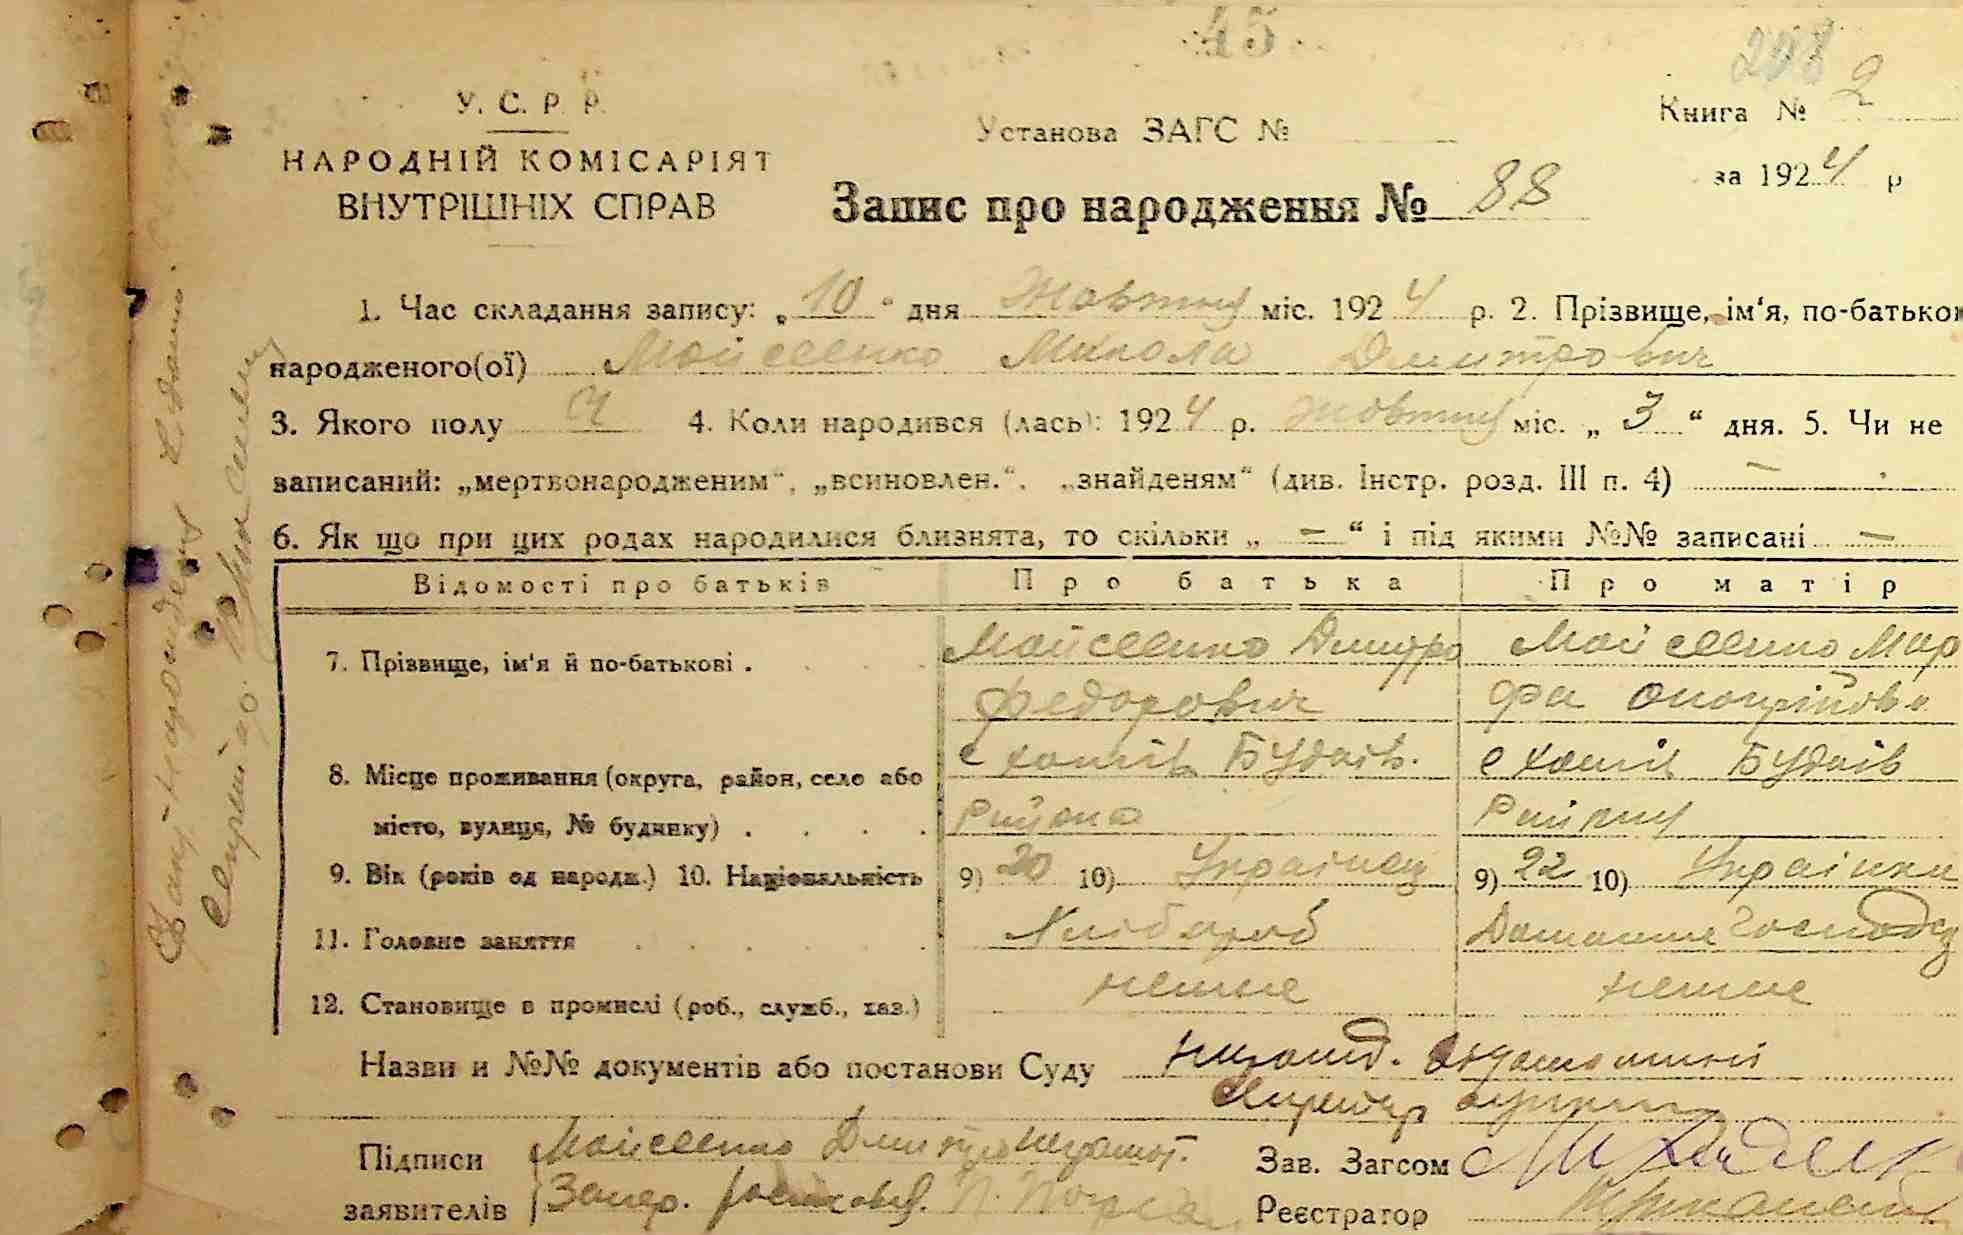 45
208
У. С. Р. Р.
НАРОДНІЙ КОМІСАРІЯТ
ВНУТРІШНІХ СПРАВ
Установа ЗАГС №
Книга № 2
за 1924 р
Запис про народження № 88
1. Час складання запису: „10" дня Жовтня міс. 1924 р. 2. Прізвище, ім'я, по-батькові
народженого(ої) Мойсеенко Микола Дмитрович
3. Якого полу Ч 4. Коли народився (лась): 1924 р. жовтня міс. „3" дня. 5. Чи не
записаний: „мертвонародженим", „всиновлен.", „знайденям" (див. Інстр. розд. III п. 4) —
6. Як що при цих родах народилися близнята, то скільки „ — " і під якими №№ записані —
Відомості про батьків Про батька Про матір
7. Прізвище, ім'я й по-батькові . Мойсеенко Дмитро Мойсеенко Мар
Федорович фа Оноприйовн
8. Місце проживання (округа, район, село або с Хотів Будаів. с Хотів Будаів
місто, вулиця, № будинку) . . . . Района Району
9. Вік (років од народж.) 10. Національність 9) 20 10) Украінец 9) 22 10) Украінка
11. Головне заняття Хлібороб Домашне Господ
12. Становище в промислі (роб., служб., хаз.) немае немае
Назви и №№ документів або постанови Суду
Підписи Мойсеенко Дмитро Зав. Загсом
заявителів Реєстратор